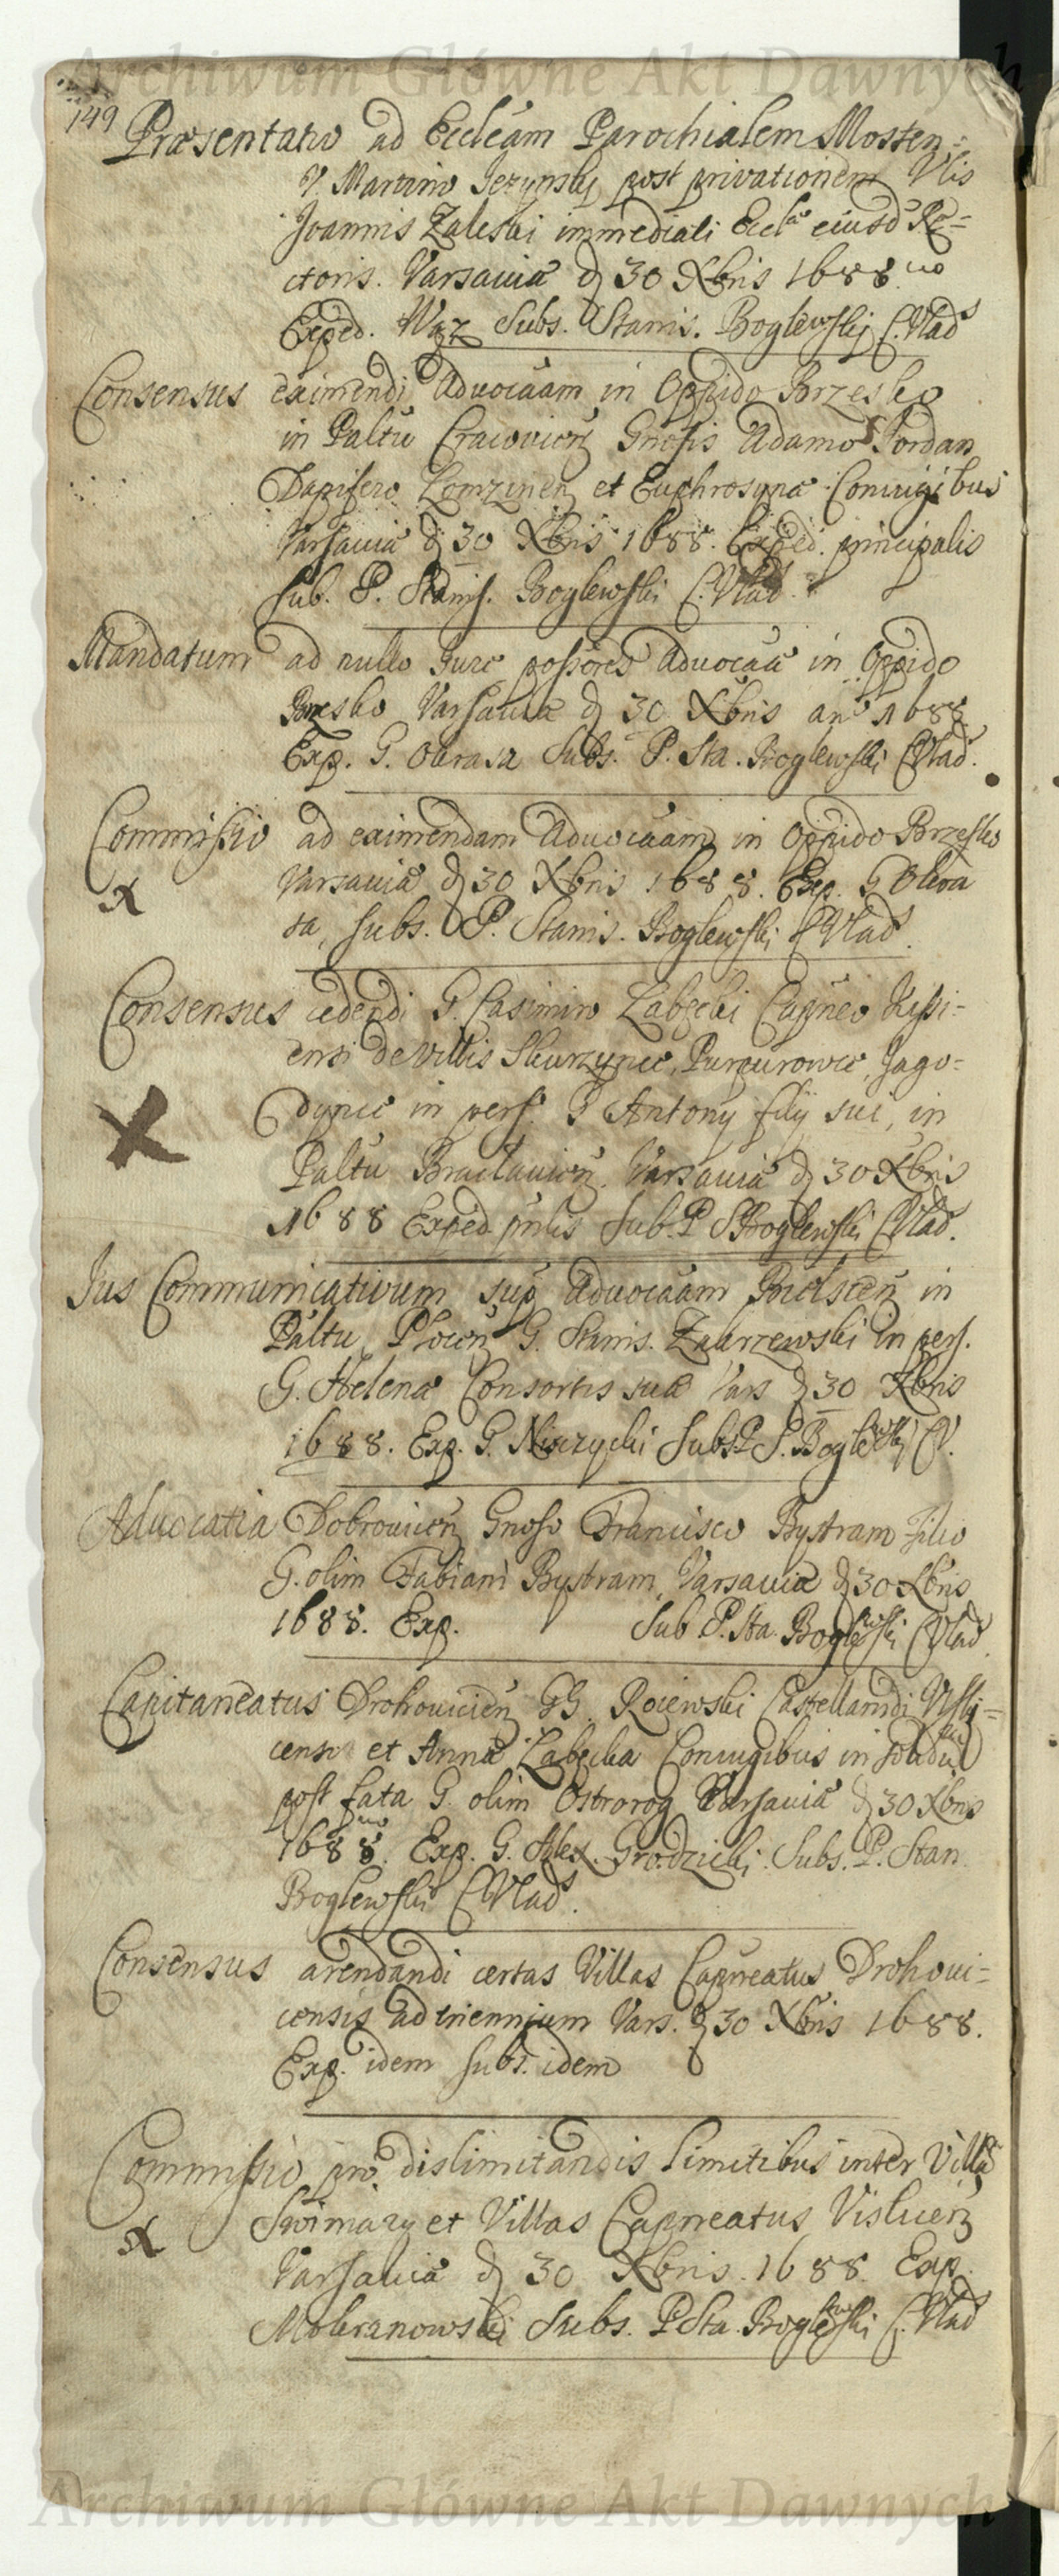 Archiwum Główne Akt Dawnych
149
Præsentatio ad Eccleam Parochialem Mosten=
V. Martino Jezynskj post privationem Vlis
Joannis Zaleski immediati Eccl eiusd Re=
ctoris. Varsaviæ d 30 Xbris 1688
Exped. Wąż Subs. Stanis. Boglewskj C. Vlad
Consensus eximendi Advocãam in Oppido Brzesko
in Paltu Cracovien Gnosis Adamo Jordan
Dapifero Lomzinen et Euphrosyna Coniugibus
Varsaviæ d 30 Xbris 1688. Exped. principalis
Sub. P. Stanis. Boglewski C. Vlad
Mandatum ad nullo Jure possores Advocãæ in Oppido
Brzesko Varsaviæ d 30 Xbris an 1688
Exp. G. Subs. P. Sta. Boglewski C Vlad.
Commissio ad eximendam Advocãam in Oppido Brzesko
X Varsaviæ d 30 Xbris 1688. Exp. G
ta, Subs. P. Stanis. Boglewski C Vlad.
Consensus cedendi G. Casimiro Zabecki Capneo
ensi de Villis Skurzynce, Purpurowce, Jago=
X dynce in pers. G Antony filij sui, in
Paltu Braclavien. Varsaviæ d 30 Xbris
1688 Exped pnlis Sub. P S Boglewski C Vlad.
Jus Communicativum sup Advocãam Bielscen in
Paltu Plocen G. Stanis. Zakrzewski in pers.
G. Helenæ Consortis suæ Vars d 30 Xbris
1688. Exp. G. Niszczycki Subs P S. Boglewskj C V.
Advocatia Dobrovicen Gnoso Francisco Bystram Filio
G. olim Fabiani Bystram, Varsaviæ d 30 Xbris
1688. Exp. Sub P. Sta. Boglewski C Vlad.
Capitaneatus Drohovicien GG. Rojewski Castellanidi Visli=
censi et Anna Zabecka Coniugibus in solidu
post fata G. olim Ostrorog Varsaviæ d 30 Xbris
1688. Exp. G. Alex. Grodzicki. Subs. P. Stan.
Boglewski C Vlad.
Consensus arendandi certas Villas Capneatus Drohovi=
censis ad triennium Vars. d 30 Xbris 1688.
Exp. idem Subs. idem
Commissio pro dislimitandis Limitibus inter Villã
X Swimary et Villas Capneatus Vislicen
Varsaviæ d 30 Xbris. 1688. Exp.
Mokranowski Subs. P Sta. Boglewski C. Vlad
Archiwum Główne Akt Dawnych